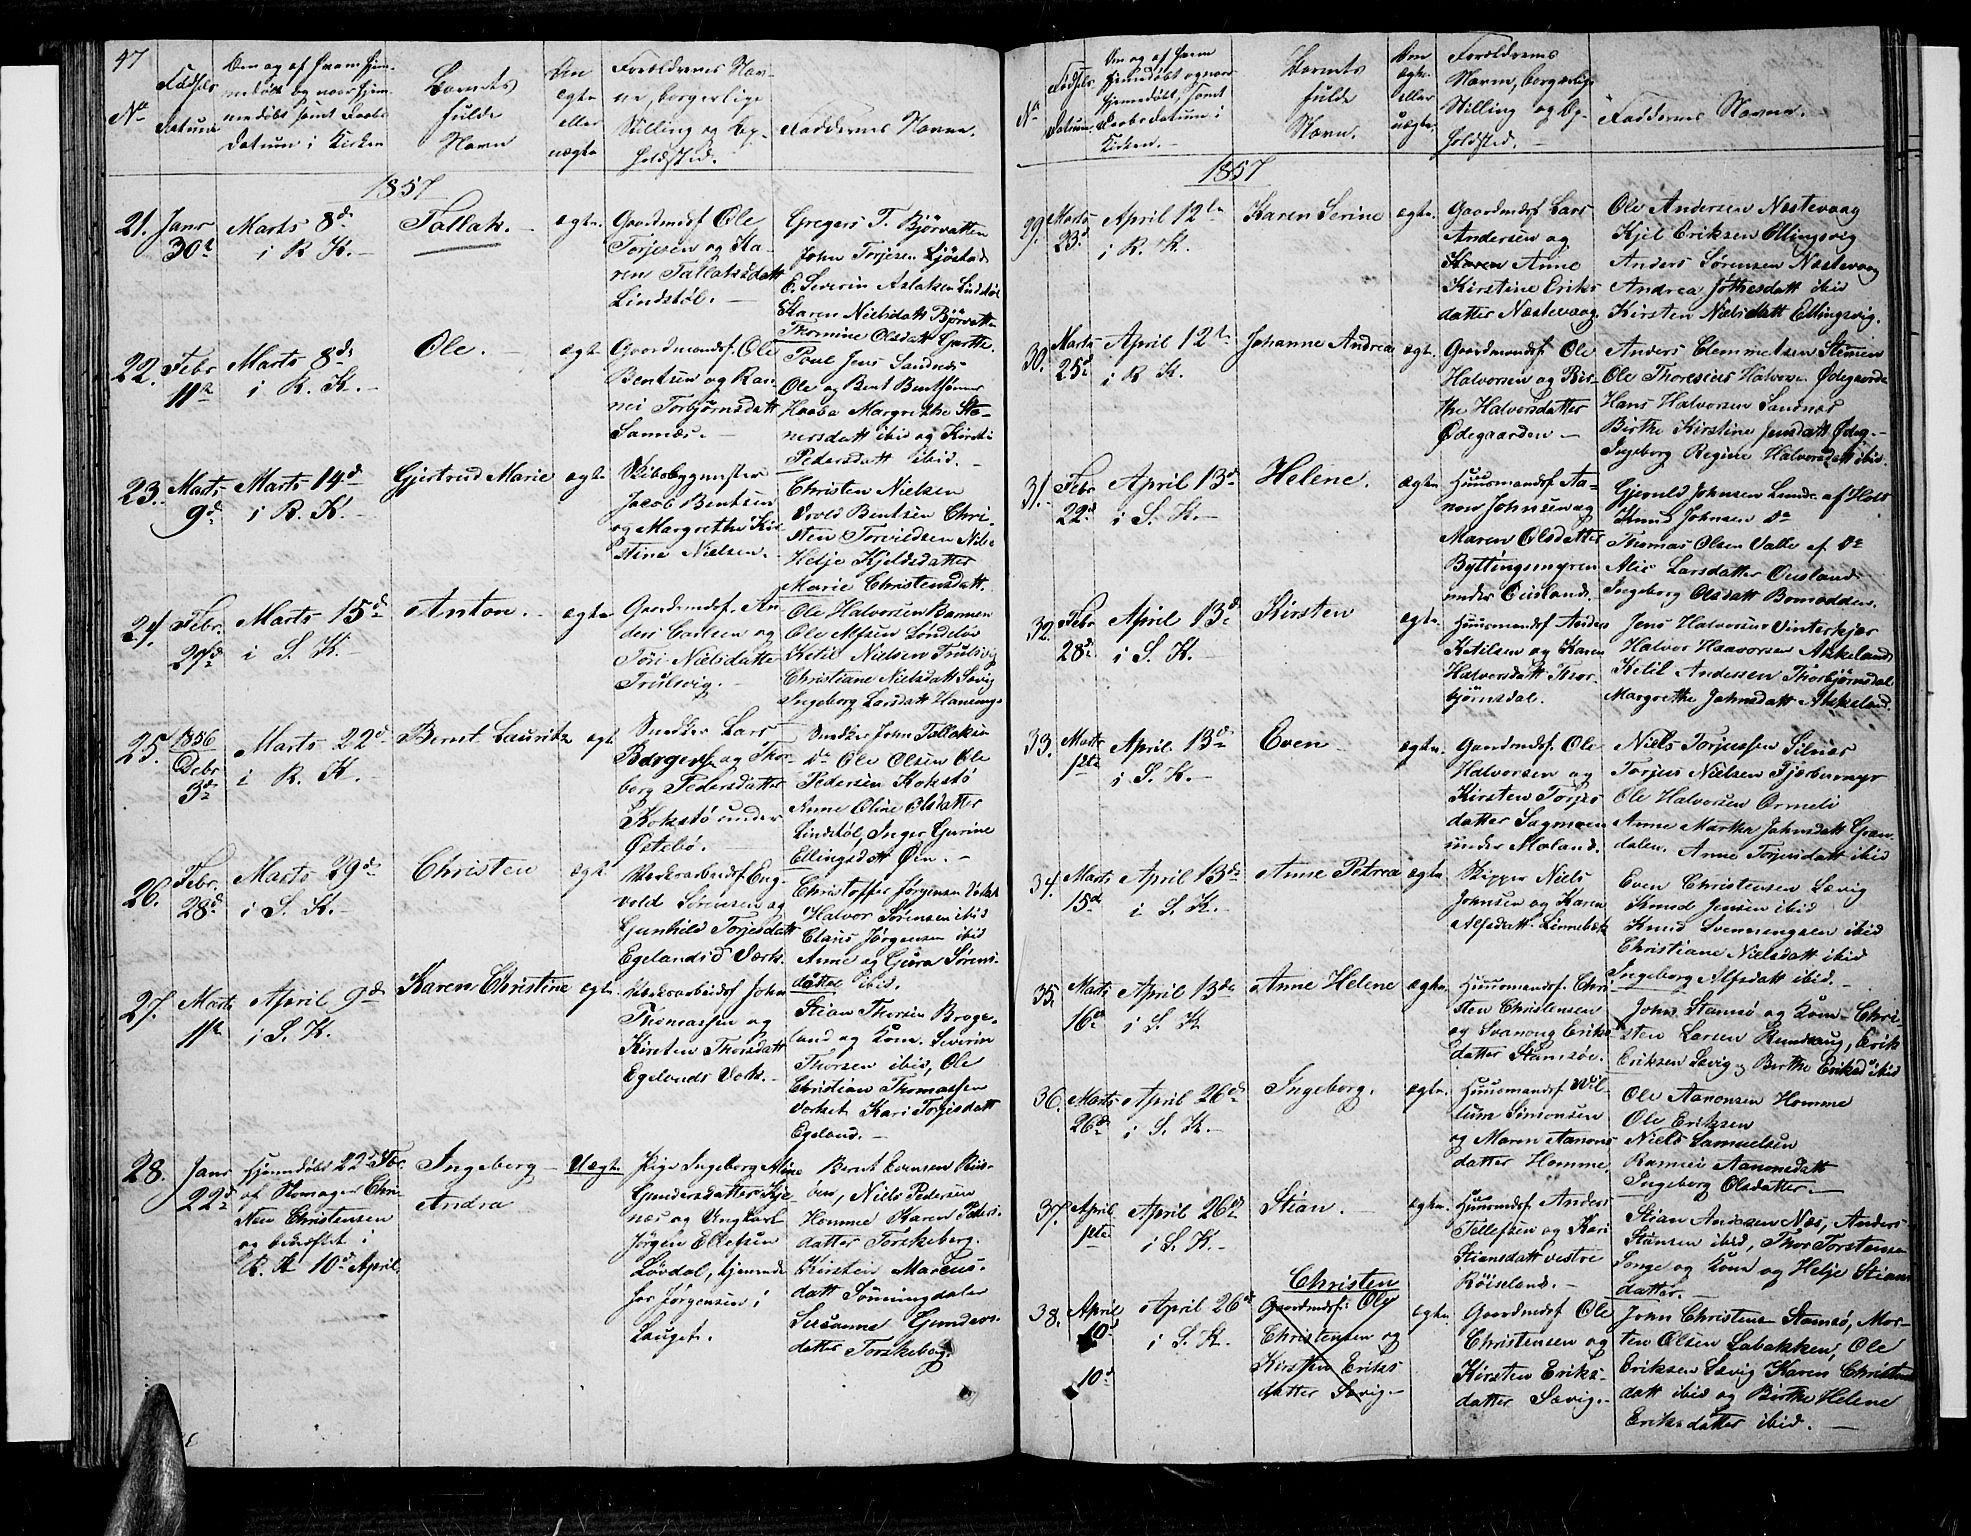 47
No
Fødsels
Datum
Barnets
fulde
Navn
Den
ægte
eller
uægte
Forældrenes Nav-
ne, borgerlige
Stilling og Op-
holdsted.
Faddernes Navne.
1857
21. Janr
30te
Marts 8de
i R. K.
Tallak.
ægte.
Gaardmdsf. Ole
Torjesen og Ka-
ren Tallaksdatt
Lindstøl.
Gregers T. Bjørvatten
John Torjesen Ljøstad
E. Severin Aslaksen Lindstøl
Karen Nielsdatt Bjørvatten
Thomine Olsdatt Garthe
22. Febr
11te
Marts 8de
i R. K.
Ole.
ægte
Gaardmandsf. Ole
Bentsen og Ran-
nei Torbjørnsdatt
Sannæs.
Poul Jens Sandnæs
Ole og Bent Bentsønner
Margrethe Sta-
nersdatt ibid og Kirsti
Pedersdatt ibid.
23. Marts
9de
Marts 14de
i R. K.
Gjertrud Marie
ægte
Skibsbygmester
Jacob Bentsen
og Margrethe Kir-
stine Nielsen.
Christen Nielsen
Bentsen Chri-
sten Torvildsen
Helje Kjeldsdatter
Marie Christensdatt.
24. Febr.
27de
Marts 15de
i S. K.
Anton.
ægte
Gaardmdsf. An-
ders Carlsen og
Nielsdatte
Trulsvig.
Ole Halvorsen Barmen
Ole Alfsen Londelov
Ketil Nielsen Trulsvig
Christiane Nielsdatt Sævig
Ingeborg Larsdatt
25. 1856
Debr
3de
Marts 22de
i R. K.
Bernt Lauritz
ægte
Snedker Lars
Børgesen og Tho-
berg Pedersdatter
Kokstø under
Østebø.
Snedker John Tallaksen
do Ole Olsen Ole
Pedersen Kokstø
Anne Oline Olsdatter
Lindstøl, Inger Gurine
Ellingsdatt Øen.
26. Febr.
28de
Marts 29de
i S. K.
Christen
ægte
Værksarbeidsf. Eng-
vold Sørensen og
Gunhild Torjesdatt
Egelands Værk.
Christoffer Jørgensen
Halvor Sørensen ibid
Claus Jørgensen ibid
Anne og Gjura Sørens-
datter ibid.
27. Marts
11te
April 9de
i S. K.
Karen Christine
ægte.
Værksarbeidsf. John
Thomassen og
Kirsten Thorsdatt
Egelands Værk.
Stian Thorsen Broge-
land og Kone. Severin
Thorsen ibid, Ole
Christian Thomassen
Værket Kari Torjesdatt
Egeland.
28. Janr
22de
Hjemdøbt 22de Febr.
af Skomager Chri-
sten Christensen
og bekræftet i
R. K 10de April.
Ingeborg
Andra
Uægte
Pige Ingeborg Aline
Gundersdatter Kje-
næs og Ungkarl
Jørgen Ellefsen
Løvdal, tjenende
hos Jørgensen i
Lauget.
Bernt Evensen Riis-
øen, Niels Pedersen
Homme Karen Peders-
datter Torskeberg.
Kirsten Marcus-
datt Sønningdalen
Susanne Gunders-
datter Torskeberg.
No
Fødsels
Datum
Barnets
fulde
Navn.
Om
ægte
eller
uægte.
Forældrenes
Navn, borgerlige
Stilling og Op-
holdsted.
Faddernes Navne.
1857
29. Marts
23de
April 12te
i R. K.
Karen Serine
ægte.
Gaardmdsf. Lars
Andersen og
Karen Anne
Kirstine Eriks
datter Næstevaag
Ole Andersen Næstevaag
Kjel Eriksen Ellingsvig
Anders Sørensen Næstevaag
Andrea ibid
Kirsten Nielsdatt Ellingsvig.
30. Marts
25de
April 12te
i R. K.
Johanne Andrea
ægte.
Gaardmandsf. Ole
Halvorsen og Bir-
the Halvorsdatter
Ødegaarden
Anders Clemmetsen Steneen
Ole Thoresius Halvorsen Ødegaarden
Hans Halvorsen Sandnæs
Birthe Kirstine Jensdatt Ødeg.
Ingeborg Regine Halvorsdatt ibid.
31. Febr
22de
April 13de
i S. K.
Helene.
ægte.
Huusmandsf Aa-
non Johnsen og
Maren Olsdatter
Byttingsmyren
under Ousland.
Gjeruld Johnsen Lunde af Holt
Knud Johnsen do
Thomas Olsen Valle af do
Alie Larsdatter Ousland
Ingeborg Olsdatt Bomodden.
32. Febr
28de
April 13de
i S. K.
Kirsten
ægte.
Huusmandsf Anders
Ketilsen og Karen
Halvorsdatt Thor-
bjørnsdal.
Jens Halvorsen Vinterkjær
Halvor Haavorsen Askeland
Ketil Andersen Thorbjørnsdal
Margrethe Johnsdatt Askeland.
33. Marts
1ste
April 13de
i S. K.
Even
ægte.
Gaardmdsf. Ole
Halvorsen og
Kirsten Torjes
datter Sagmoen
under Moland.
Niels Torjussen Selnæs
Torjus Nielsen Tjærbumyr
Ole Halvorsen Ormeli
Anne Marthe Johnsdatt Gran-
dalen. Anne Torjusdatt ibid
34. Marts
15de
April 13de
i S. K.
Anne Petrea
ægte
Skipper Niels
Johnsen og Karen
Alfsdatt Linnebek
Even Christensen Sævig
Knud Jensen ibid
Knud Svenningsen ibid
Christiane Nielsdatt ibid
Ingeborg Alfsdatt ibid.
35. Marts
16de
April 13de
i S. K
Anne Helene
ægte.
Huusmandsf. Chri-
sten Christensen
og Svanoug Eriks
datter Stamsøe.
John Stamsø og Kone. Chri-
sten Larsen Rundaug, Erik
Eriksen Sævig og Birthe Eriksd ibid
36. Marts
26de
April 26de
i S. K.
Ingeborg.
ægte.
Huusmandsf Wil-
lum Simonsen
og Maren Aanons
datter Homme
Ole Aanonsen Homme
Ole Eriksen
Niels Samuelsen
Rannei Aanonsdatt
Ingeborg Olsdatter.
37. April
1ste
April 26de
i S. K.
Stian.
ægte.
Huusmandsf Anders
Tellefsen og Kari
Stiansdatt vestre
Røiseland.
Stian Andersen Næs, Anders
Stiansen ibid, Thor Torstensen
Songe og Kone og Helje Stians
datter.
38. April
10de
10de
April 26de
i S. K.
Christen
Gaardmdsf: Ole
Christensen og
Kirsten Eriks
datter Sævig.
ægte.
Gaardmdsf Ole
Christensen og
Kirsten Eriks-
datter Sævig.
John Christens. Stamsø, Mor-
ten Olsen Labakken, Ole
Eriksen Sævig Karen Christens
datt ibid og Birthe Helene
Eriksdatter ibid.